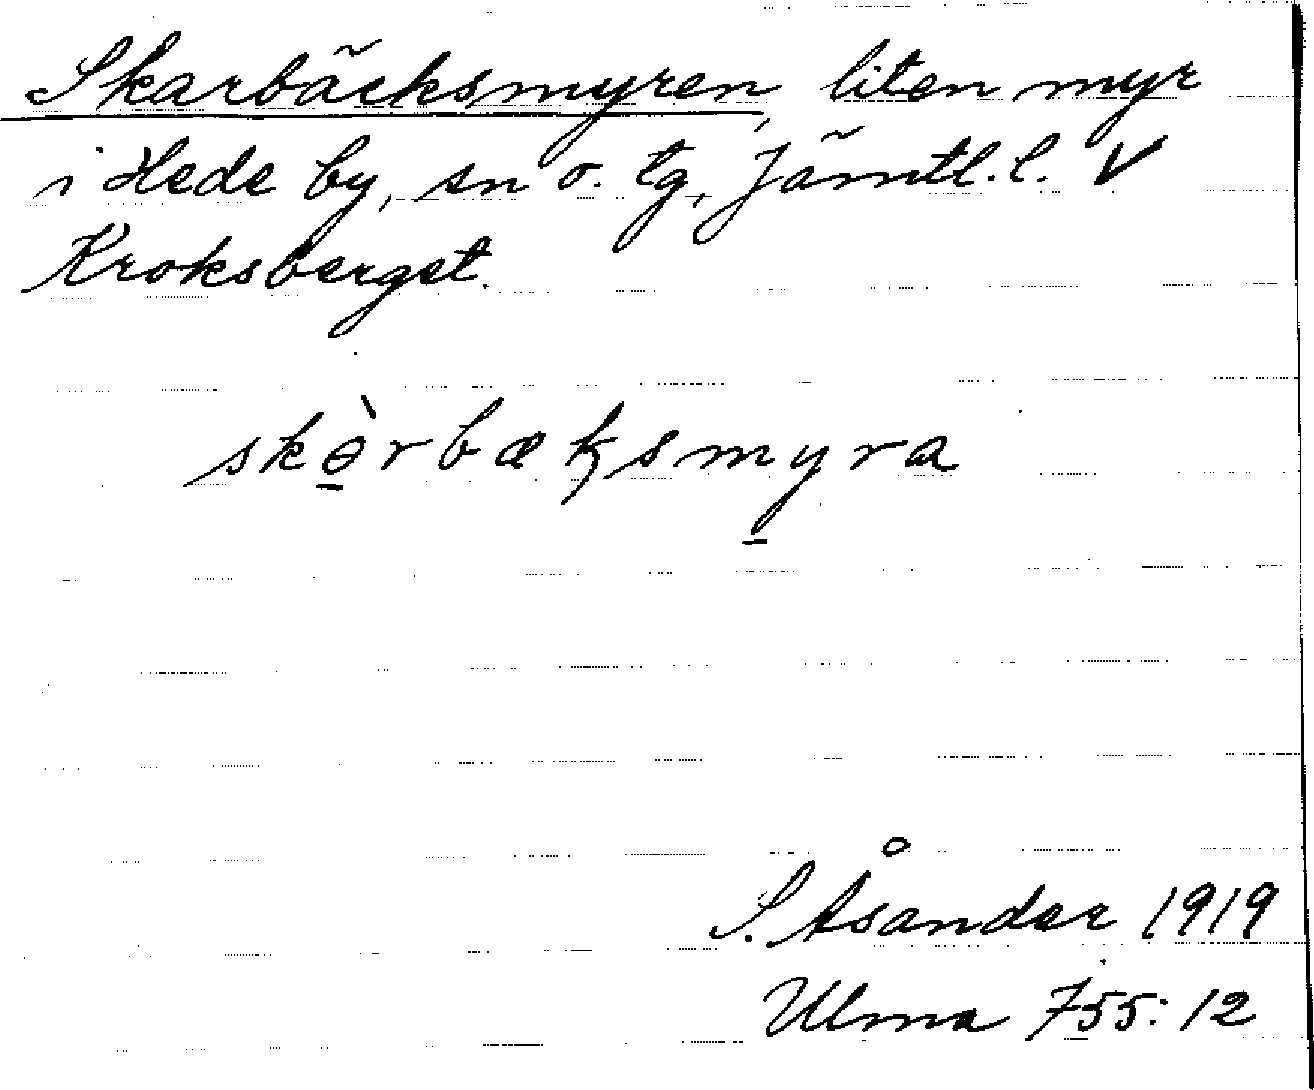 Skarbäcksmyren, liten myr
i Hede by, sn o. tg, Jämtl. l. V
Kroksberget.
skɵ̀rbækʂsmyra
S. Åsander 1919
Ulma 755:12